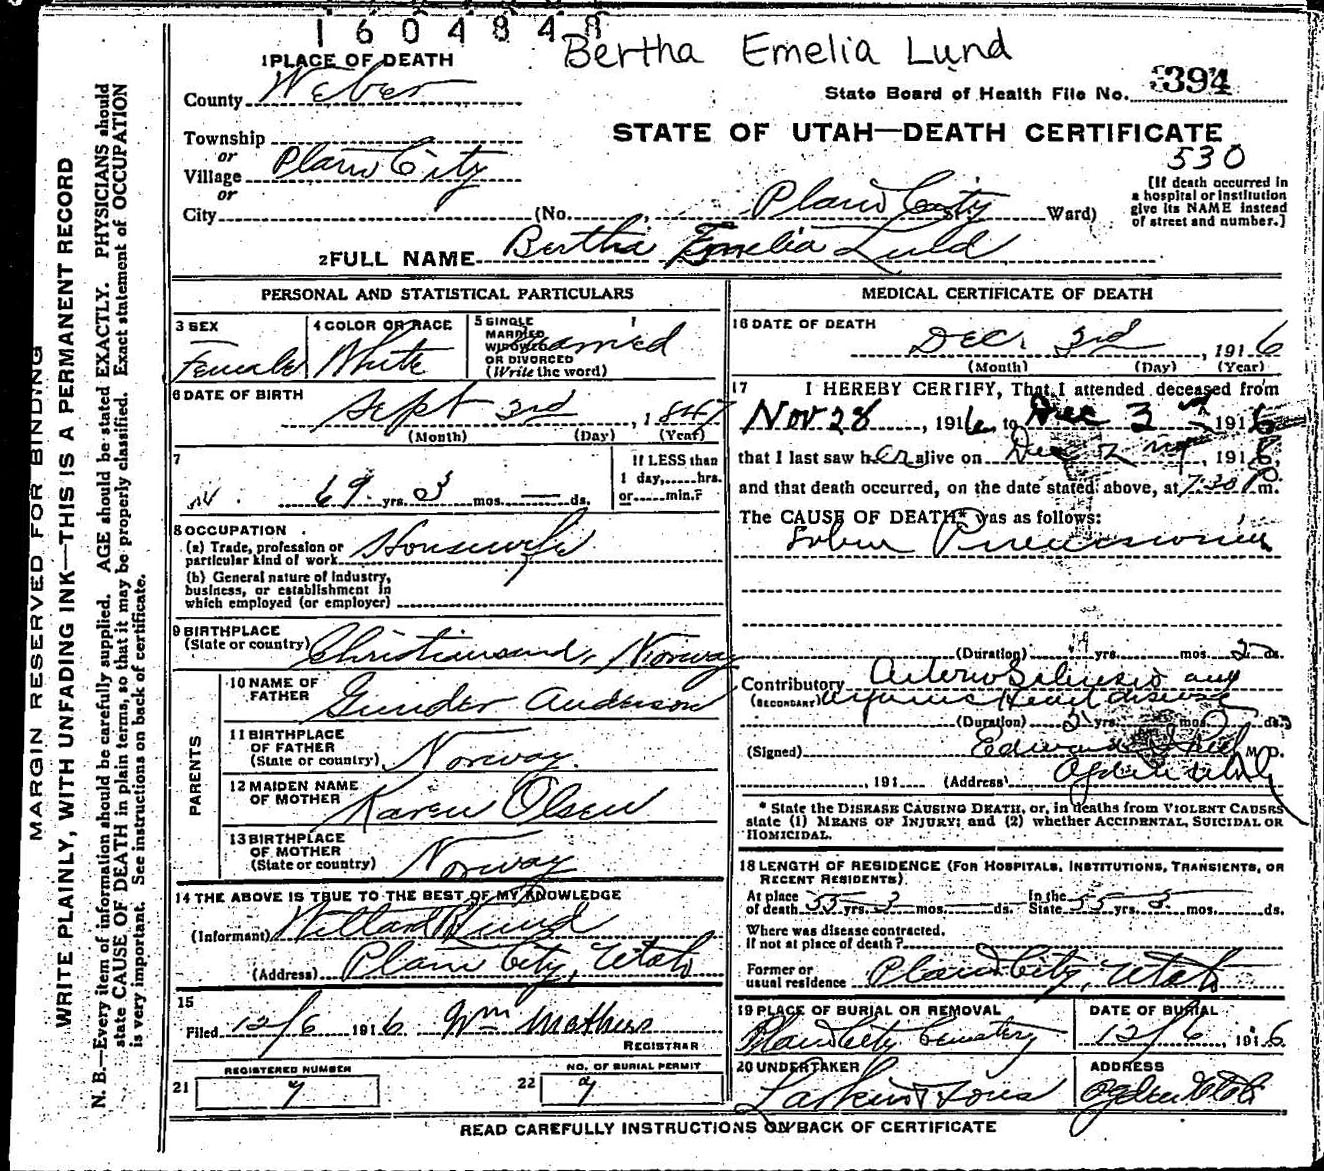 1604848
Bertha Emelia Lund
1 PLACE OF DEATH
County Weber
State Board of Health File No. 394
STATE OF UTAH—DEATH CERTIFICATE
530
Township
or
Village Plain City
or
City (No. , Plain City St. Ward)
[If death occurred in
a hospital or institution
give its NAME instead
of street and number.]
2 FULL NAME Bertha Emelia Lund
PERSONAL AND STATISTICAL PARTICULARS
3 SEX
Female
4 COLOR OR RACE
White
5 SINGLE
MARRIED
WIDOWED
OR DIVORCED
(Write the word)
Married
6 DATE OF BIRTH
Sept 3rd, 1847
(Month) (Day) (Year)
7
69 yrs. 3 mos. — ds.
If LESS than
1 day, hrs.
or min.?
8 OCCUPATION
(a) Trade, profession or
particular kind of work Housewife
(b) General nature of industry,
business, or establishment in
which employed (or employer)
9 BIRTHPLACE
(State or country) Christiansand, Norway
PARENTS
10 NAME OF
FATHER Gunder Anderson
11 BIRTHPLACE
OF FATHER
(State or country) Norway.
12 MAIDEN NAME
OF MOTHER Karen Olsen
13 BIRTHPLACE
OF MOTHER
(State or country) Norway
14 THE ABOVE IS TRUE TO THE BEST OF MY KNOWLEDGE
(Informant) Willard Lund
(Address) Plain City, Utah
15
Filed 12/6 1916 Wm Mathers
REGISTRAR
21 REGISTERED NUMBER
7
22 NO. OF BURIAL PERMIT
7
MEDICAL CERTIFICATE OF DEATH
16 DATE OF DEATH
Dec. 3rd, 1916
(Month) (Day) (Year)
17 I HEREBY CERTIFY, That I attended deceased from
Nov 28, 1916 to Dec 3rd, 1916
that I last saw her alive on Dec 2nd, 1916,
and that death occurred, on the date stated above, at 7:30 P.m.
The CAUSE OF DEATH* was as follows:
Lobar Pneumonia
(Duration) yrs. mos. ds.
Contributory Arterio Sclerosis and
(SECONDARY) organic Heart disease
(Duration) yrs. mos. ds.
(Signed) Edward M.D.
, 191 (Address) Ogden Utah
* State the DISEASE CAUSING DEATH, or, in deaths from VIOLENT CAUSES
state (1) MEANS OF INJURY; and (2) whether ACCIDENTAL, SUICIDAL OR
HOMICIDAL.
18 LENGTH OF RESIDENCE (FOR HOSPITALS, INSTITUTIONS, TRANSIENTS, OR
RECENT RESIDENTS)
At place
of death 55 yrs. 3 mos. ds.
In the
State 55 yrs. 3 mos. ds.
Where was disease contracted.
If not at place of death?
Former or
usual residence Plain City, Utah
19 PLACE OF BURIAL OR REMOVAL
Plain City Cemetery
DATE OF BURIAL
12/6, 1916
20 UNDERTAKER
Larkin & Sons
ADDRESS
Ogden Utah
READ CAREFULLY INSTRUCTIONS ON BACK OF CERTIFICATE
MARGIN RESERVED FOR BINDING
WRITE PLAINLY, WITH UNFADING INK—THIS IS A PERMANENT RECORD
N. B.—Every item of information should be carefully supplied. AGE should be stated EXACTLY. PHYSICIANS should
state CAUSE OF DEATH in plain terms, so that it may be properly classified. Exact statement of OCCUPATION
is very important. See instructions on back of certificate.